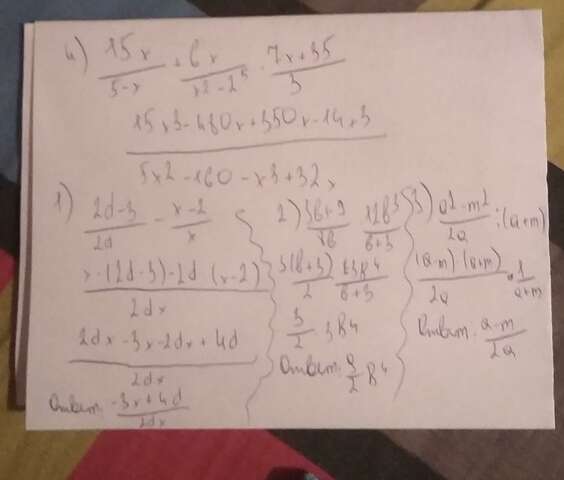 4) 15x/5-x + 6x/x2-25 · 7x+35/3
15x3-480x+350x-14x3/5x2-160-x3+32x
1) 2d-3/2d - x-2/x
x·(2d-3)-2d (x-2)/2dx
2dx-3x-2dx+4d/2dx
Ответ: -3x+4d/2dx
2) 3b+9
b+3
3(b+3)/2
b+3
3/2 3b4
Ответ: 9/2 b4
3) a2-m2/2a : (a+m)
(a-m) (a+m)/2a · 1/a+m
Ответ: a-m/2a